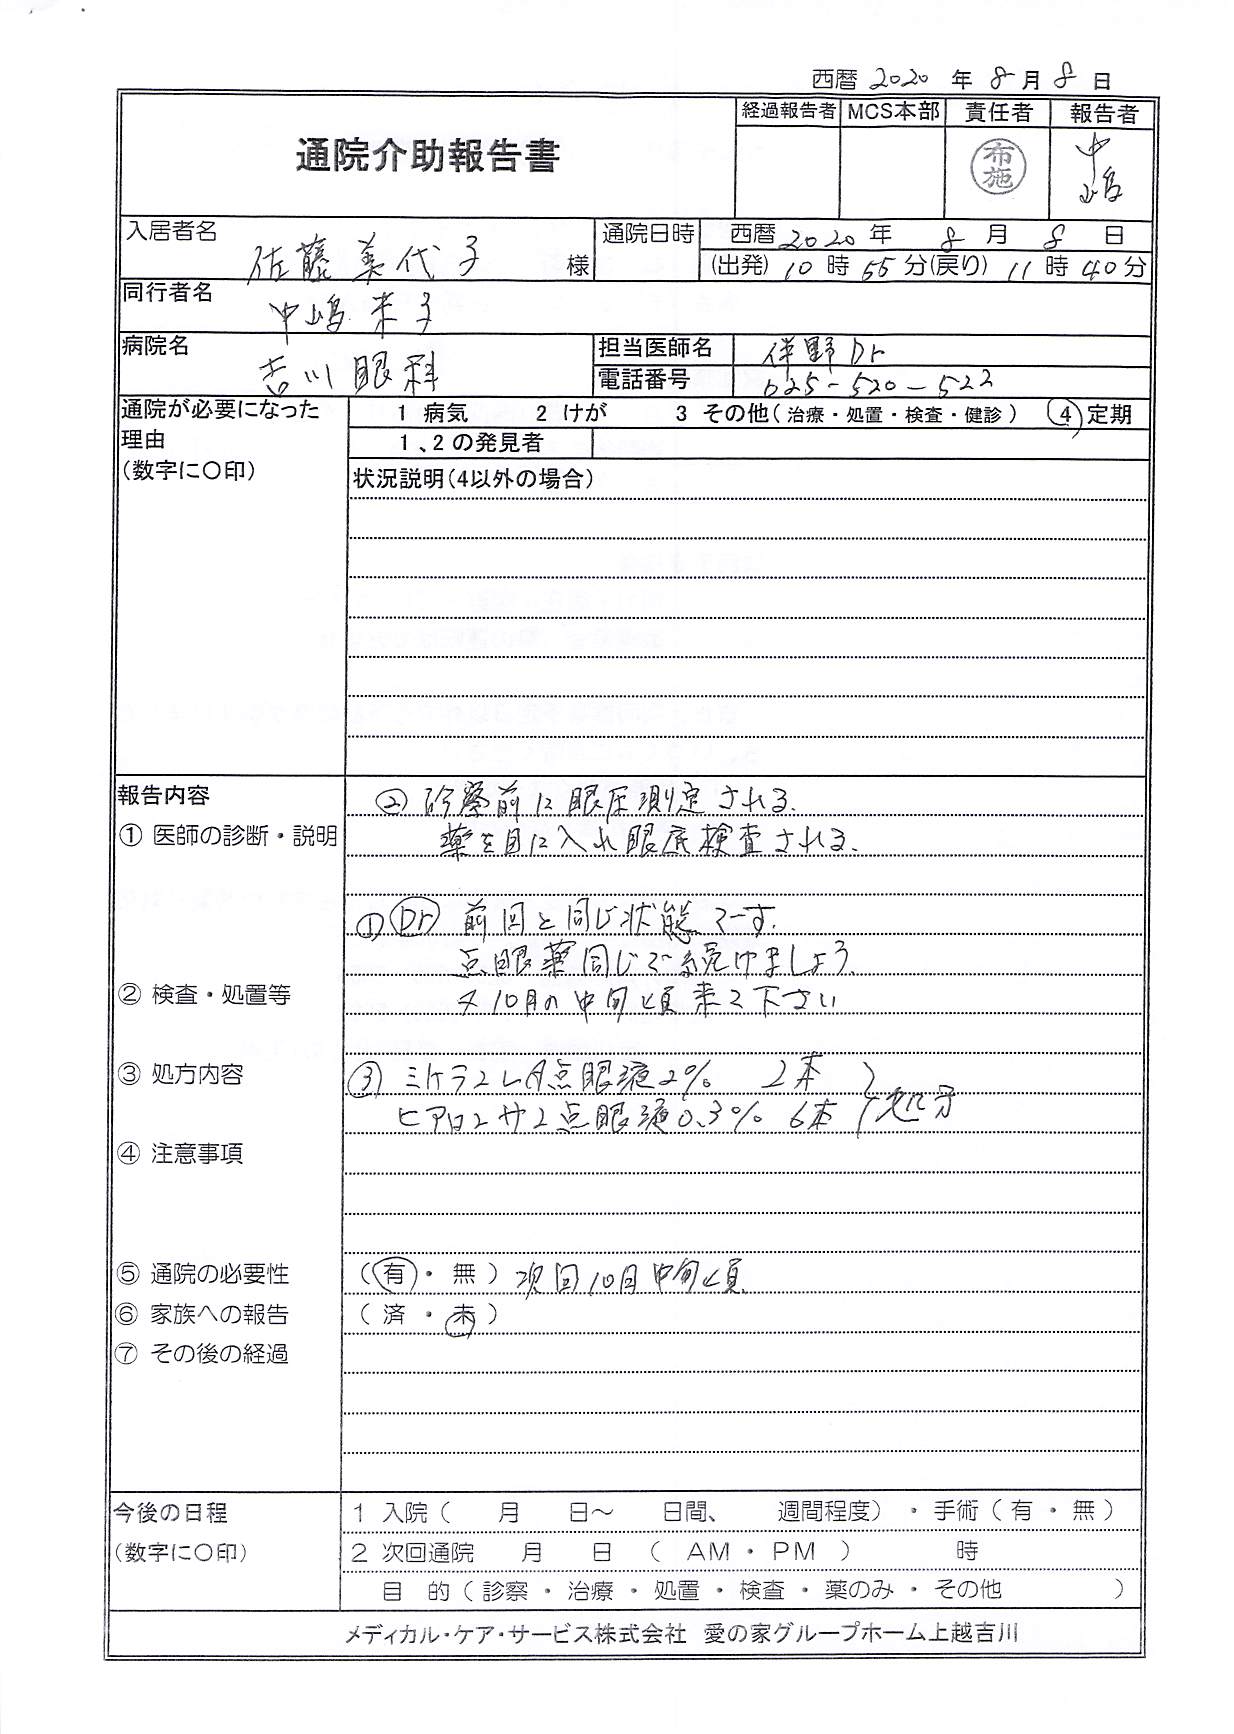 西暦 2020 年 8 月 8 日
通院介助報告書
経過報告者 MCS本部 責任者 報告者
布施 中嶋
入居者名 佐藤美代子 様
通院日時 西暦 2020 年 8 月 8 日
(出発) 10 時 55 分 (戻り) 11 時 40 分
同行者名 中嶋 来子
病院名 吉川眼科
担当医師名 伴野Dr
電話番号 025-520-522
通院が必要になった
理由
(数字に〇印)
1 病気 2 けが 3 その他(治療・処置・検査・健診) ④ 定期
1、2の発見者
状況説明(4以外の場合)
報告内容
② 診察前に眼圧測定される.
① 医師の診断・説明
薬を目に入れ眼底検査される.
① Dr 前回と同じ状態です.
点眼薬同じで続けましょう.
② 検査・処置等
又10月の中旬頃来て下さい
③ 処方内容
③ ミケランLA点眼液2% 2本
ヒアロンサン点眼液0.3% 6本 処方
④ 注意事項
⑤ 通院の必要性 (有・無) 次回10月中旬頃
⑥ 家族への報告 (済・未)
⑦ その後の経過
今後の日程
(数字に〇印)
1 入院 ( 月 日〜 日間、 週間程度) ・ 手術 ( 有 ・ 無 )
2 次回通院 月 日 ( AM ・ PM ) 時
目 的 ( 診察 ・ 治療 ・ 処置 ・ 検査 ・ 薬のみ ・ その他 )
メディカル・ケア・サービス株式会社 愛の家グループホーム上越吉川